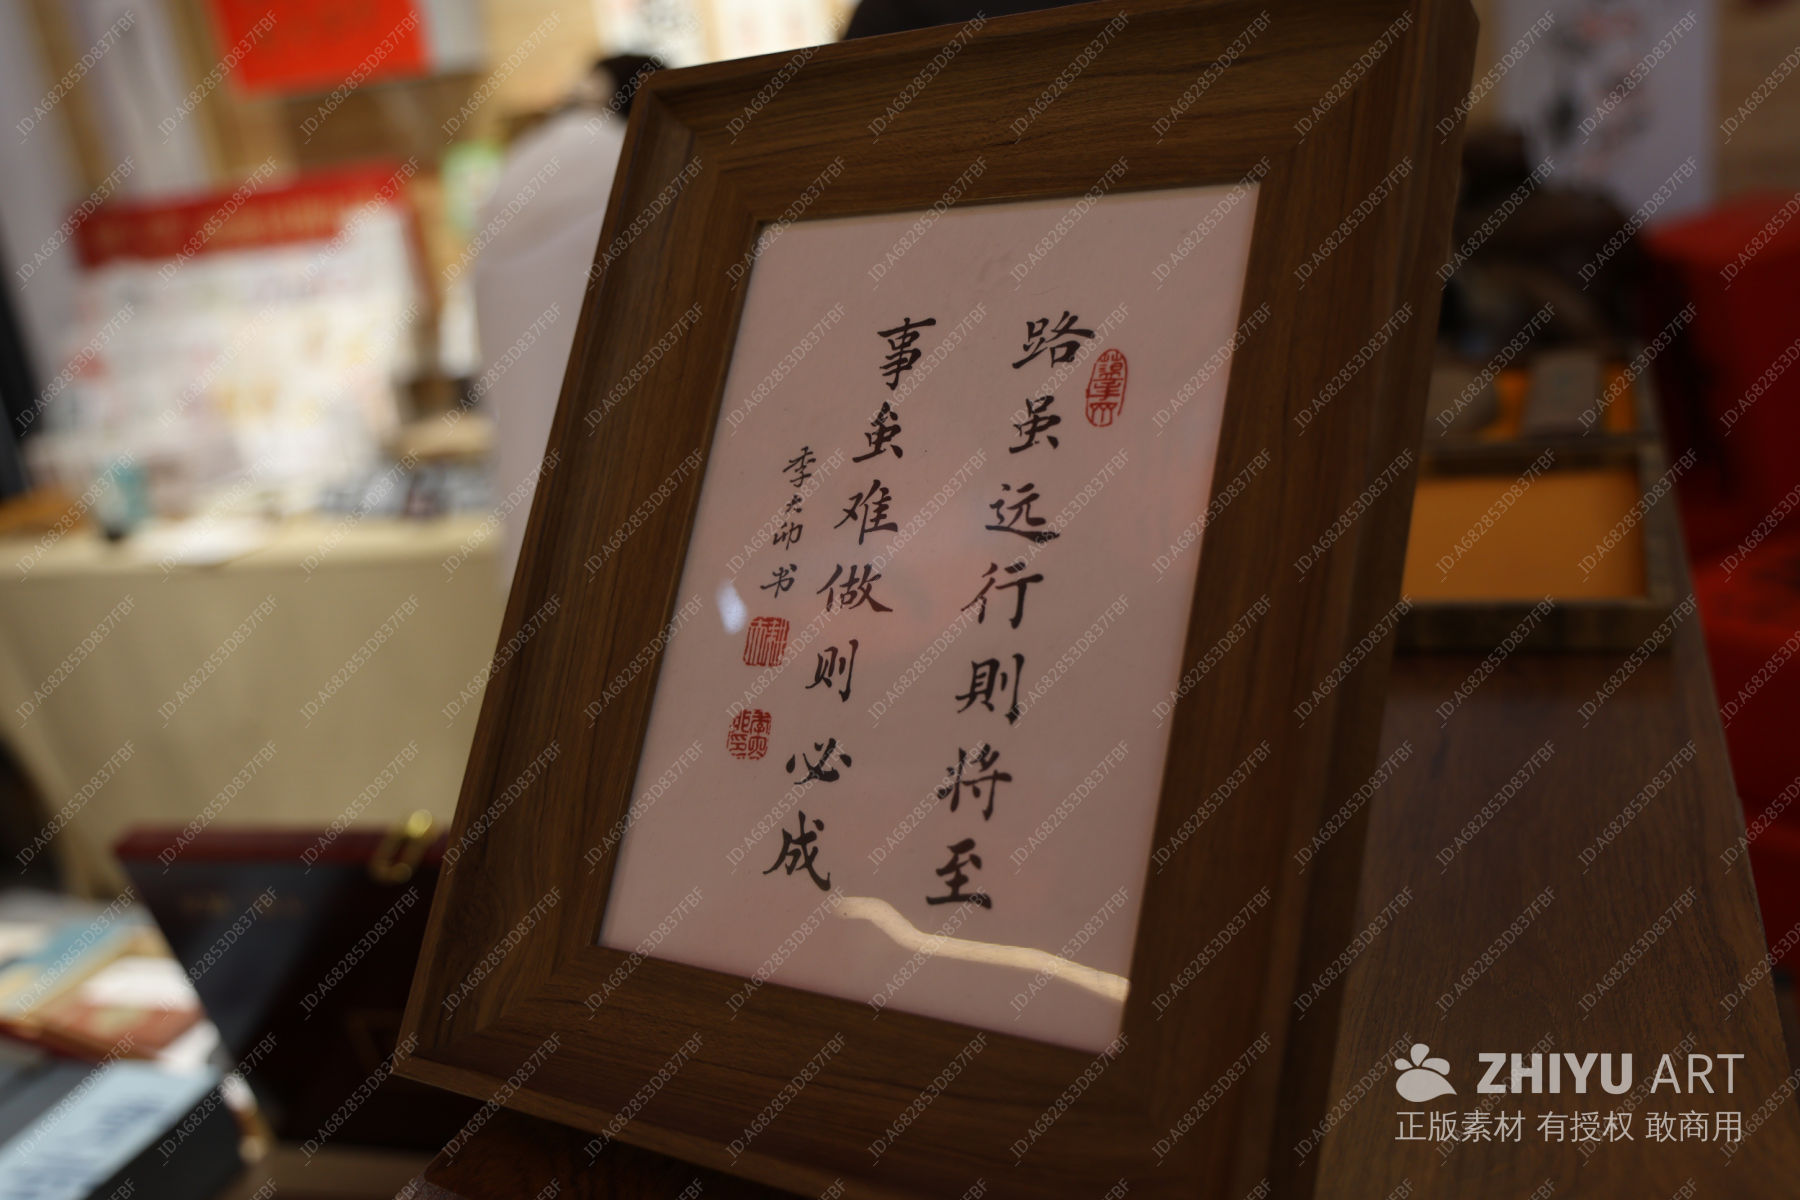 路虽远行則将至
事虽难做则必成
季大卯书
ZHIYU ART
正版素材 有授权 敢商用
ID:A682853D837FBF